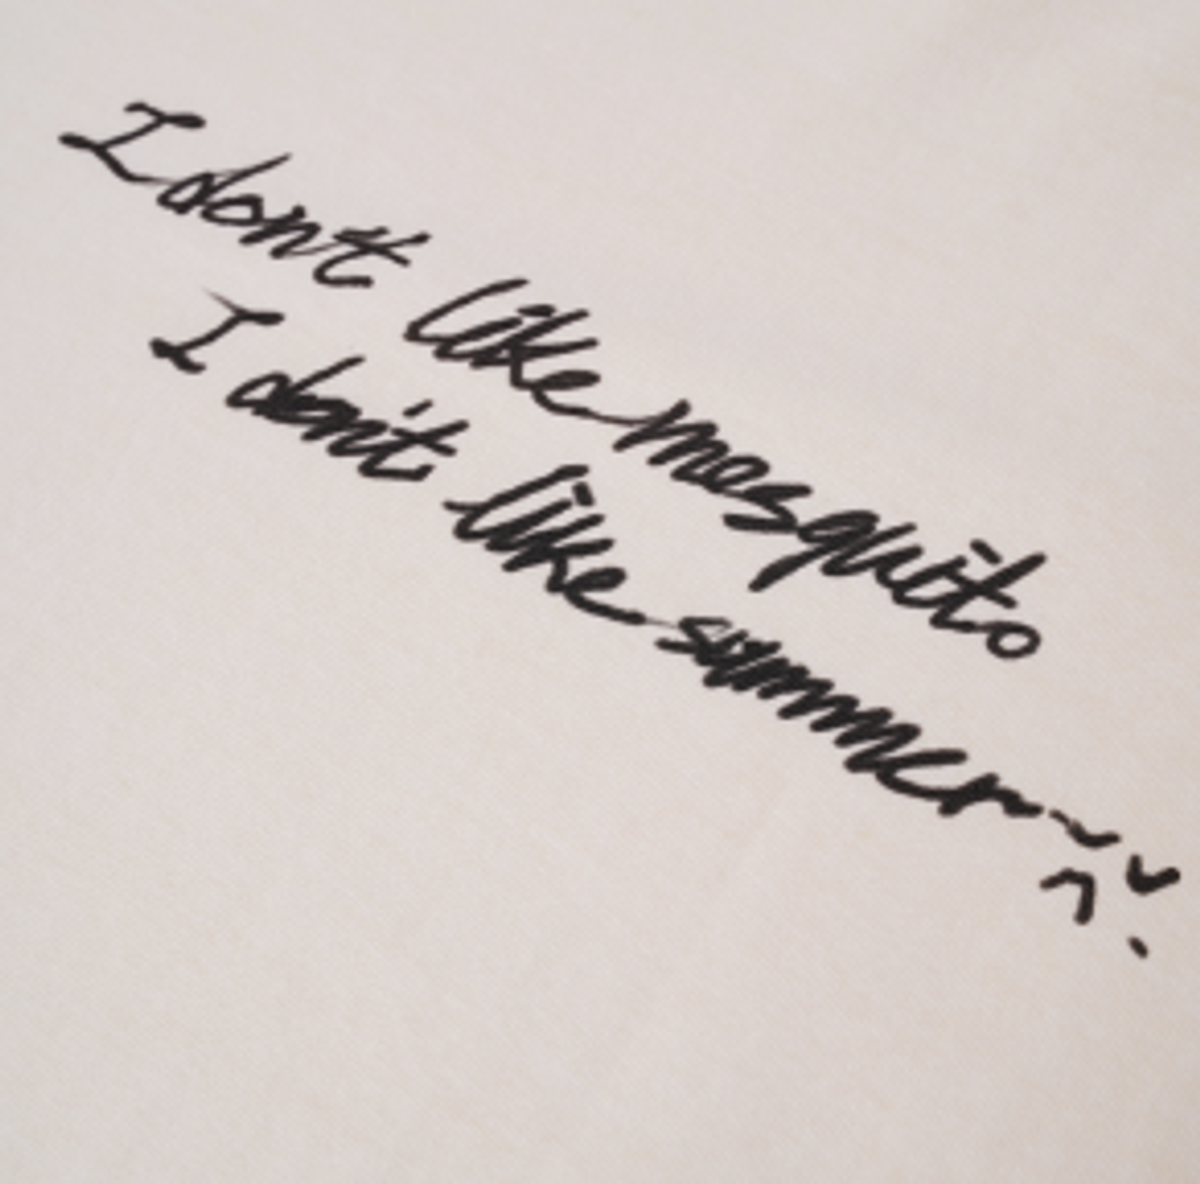 I don't like mosquito
I don't like summer~